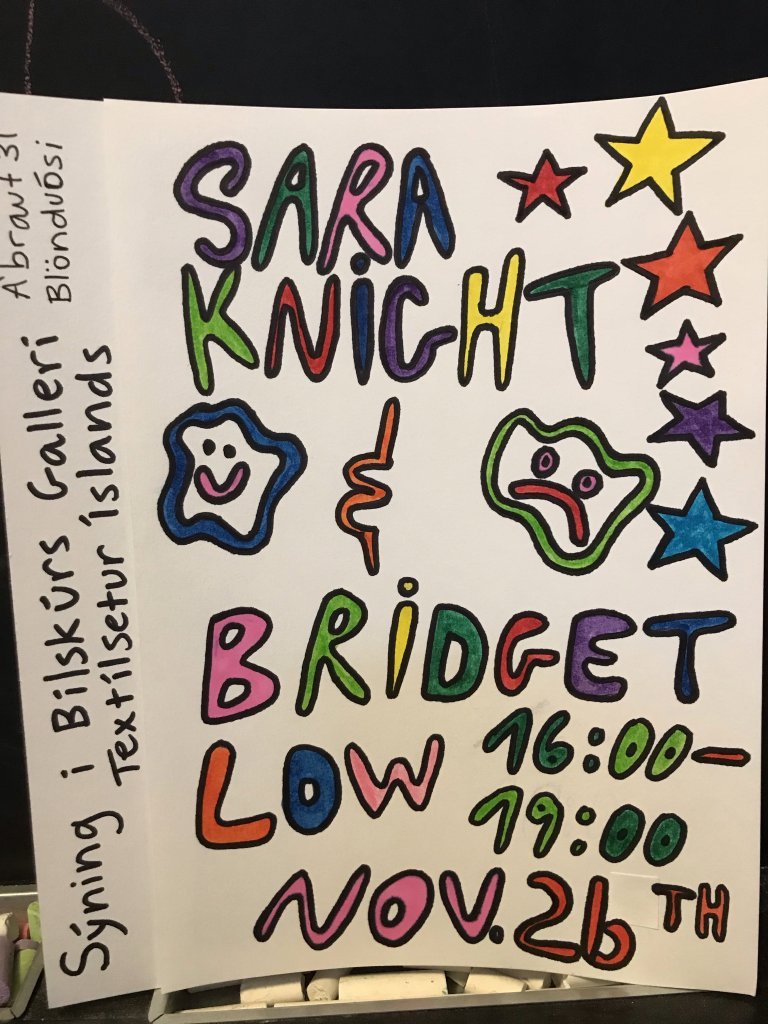 SARA
KNiGHT
&
BRiDGET
LOW
16:00–
19:00
NOV. 26TH
Sýning í Bílskúrs Gallerí
Textílsetur Íslands
Á'braut 31
Blönduósi